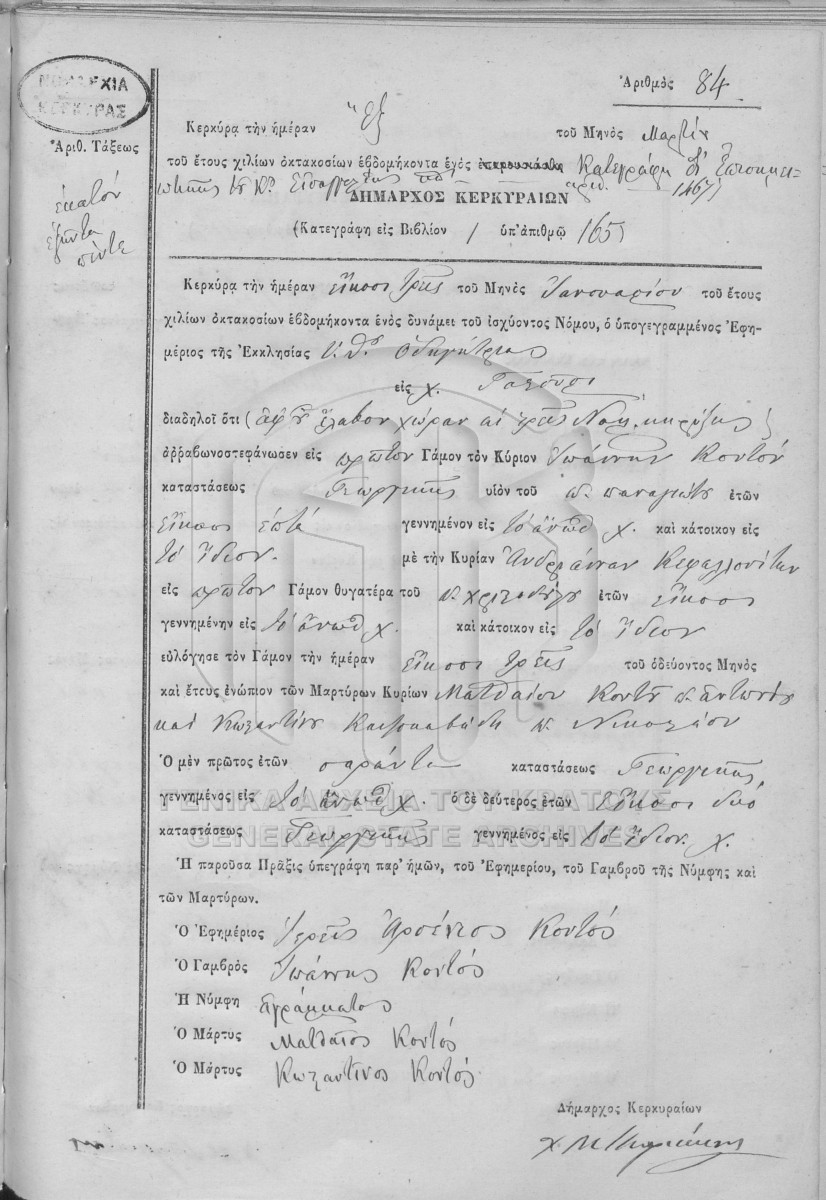 ΝΟΜΑΡΧΙΑ
ΚΕΡΚΥΡΑΣ
Ἀριθμὸς 84
Ἀριθ. Τάξεως
ἑκατόν
ἑξῆντα
πέντε
Κερκύρᾳ τὴν ἡμέραν ἕξ τοῦ Μηνὸς Μαρτίου
τοῦ ἔτους χιλίων ὀκτακοσίων ἑβδομήκοντα ἑνὸς Κατεγράφη
ἀριθ. 1467
ΔΗΜΑΡΧΟΣ ΚΕΡΚΥΡΑΙΩΝ
(Κατεγράφη εἰς Βιβλίον 1 ὑπ' ἀριθμῷ 165)
Κερκύρᾳ τὴν ἡμέραν εἴκοσι τρεῖς τοῦ Μηνὸς Ἰανουαρίου τοῦ ἔτους
χιλίων ὀκτακοσίων ἑβδομήκοντα ἑνὸς δυνάμει τοῦ ἰσχύοντος Νόμου, ὁ ὑπογεγραμμένος Ἐφη-
μέριος τῆς Ἐκκλησίας Ὁδηγήτριας
εἰς χ.
διαδηλοῖ ὅτι (ἀφ' οὗ ἔλαβον χώραν αἱ τρεῖς Νομ. κηρύξεις)
ἀῤῥαβωνοστεφάνωσεν εἰς πρῶτον Γάμον τὸν Κύριον Ἰωάννην Κοντόν
καταστάσεως Γεωργικῆς υἱὸν τοῦ π. παναγιώτου ἐτῶν
εἴκοσι ἑπτά γεννημένον εἰς τὸ ἄνωθ χ. καὶ κάτοικον εἰς
τὸ ἴδιον. μὲ τὴν Κυρίαν Ἀνδριάναν Κεφαλλονίτην
εἰς πρῶτον Γάμον θυγατέρα τοῦ ἐτῶν εἴκοσι
γεννημένην εἰς τὸ ἄνωθ χ. καὶ κάτοικον εἰς τὸ ἴδιον
εὐλόγησε τὸν Γάμον τὴν ἡμέραν εἴκοσι τρεῖς τοῦ ὁδεύοντος Μηνὸς
καὶ ἔτους ἐνώπιον τῶν Μαρτύρων Κυρίων Ματθαίου Κοντοῦ π. ἀντωνίου
καὶ Κωσταντίνου π. Νικολάου
Ὁ μὲν πρῶτος ἐτῶν σαράντα καταστάσεως Γεωργικῆς
γεννημένος εἰς τὸ ἄνωθ χ. ὁ δὲ δεύτερος ἐτῶν εἴκοσι δυό
καταστάσεως Γεωργικῆς γεννημένος εἰς τὸ ἴδιον χ.
ΓΕΝΙΚΑ ΑΡΧΕΙΑ ΤΟΥ ΚΡΑΤΟΥΣ
GENERAL STATE ARCHIVES
Ἡ παροῦσα Πρᾶξις ὑπεγράφη παρ' ἡμῶν, τοῦ Ἐφημερίου, τοῦ Γαμβροῦ τῆς Νύμφης καὶ
τῶν Μαρτύρων.
Ὁ Ἐφημέριος Ἱερεὺς Ἀρσένιος Κοντός
Ὁ Γαμβρὸς Ἰωάννης Κοντός
Ἡ Νύμφη ἀγράμματος
Ὁ Μάρτυς Ματθαῖος Κοντός
Ὁ Μάρτυς Κωσταντίνος Κοντός
Δήμαρχος Κερκυραίων